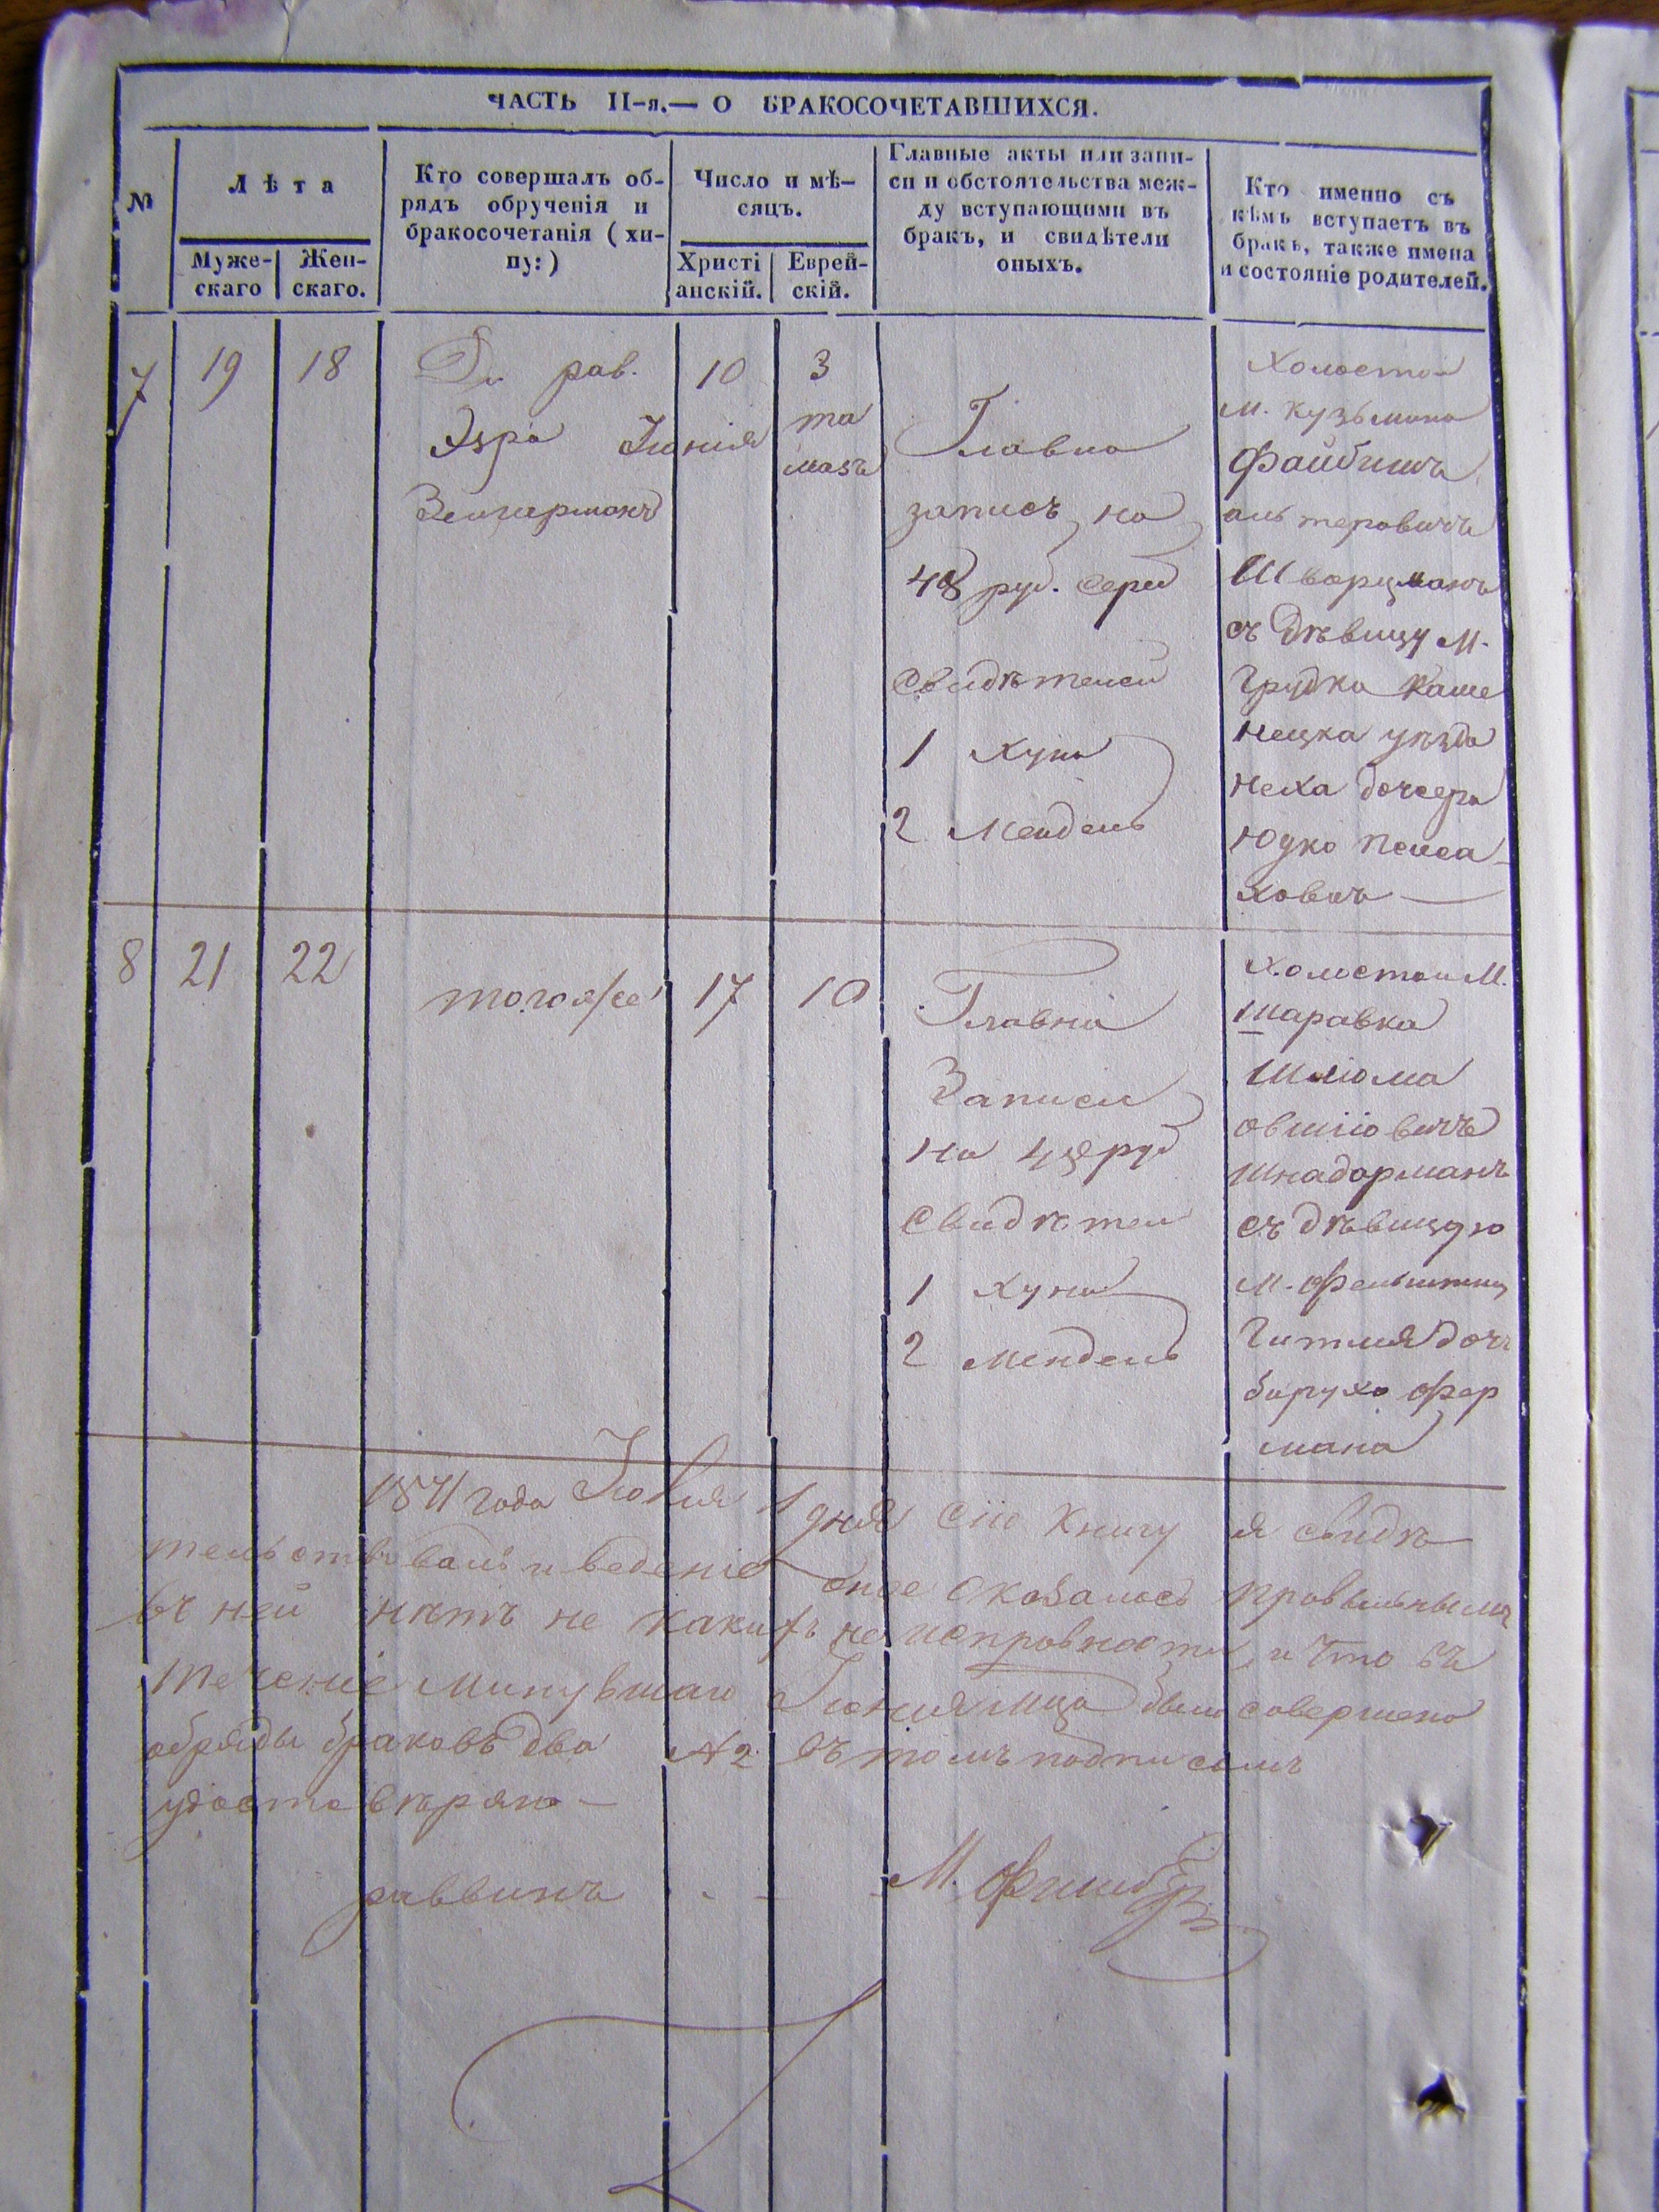 ЧАСТЬ II-я.— О БРАКОСОЧЕТАВШИХСЯ.
№
Лѣта
Муже-
скаго
Жен-
скаго.
Кто совершалъ об-
рядъ обрученія и
бракосочетанія (ху-
пу:)
Число и мѣ-
сяцъ.
Христі
анскій.
Еврей-
скій.
Главные акты или запи-
си и обстоятельства меж-
ду вступающими въ
бракъ, и свидѣтели
оныхъ.
Кто именно съ
кѣмъ вступаетъ въ
бракъ, также имена
и состояніе родителей.
7
19
18
рав.
Эзра
Зенгерманъ
10
Іюнія
3
та
мазъ
Главна
записъ на
48 руб. сереб
Свидѣтелей
1 Хуна
2 Мендель
Холостой
м. Кузьмина
Файбишъ
альтеровичъ
Шварцманъ
съ Дѣвицу М.
Грудка Каме
нецка уѣзда
Неха дочеръ
Юдко Пейса
ховичъ —
8
21
22
тогоже
17
10
Главна
Записи
на 48 руб
Свидѣтели
1 Хуна
2 Мендель
Холостои М.
Шаравка
Шліома
овшіовичъ
Шнадорманъ
съ дѣвицую
м. Фельштин
Гитля доч
баруха Фер
мана
1871 года Іюлия 1 дня Сію Книгу я свидѣ
тельствовалъ и веденіе оное оказалосъ правильнымъ
въ ней нѣтъ не какихъ неисправности, и что въ
течение минувшаго Іюния мца было совершено
обряды браковъ два № 2 въ томъ подписомъ
удостовѣряю —
раввинъ - - - М. Фишб